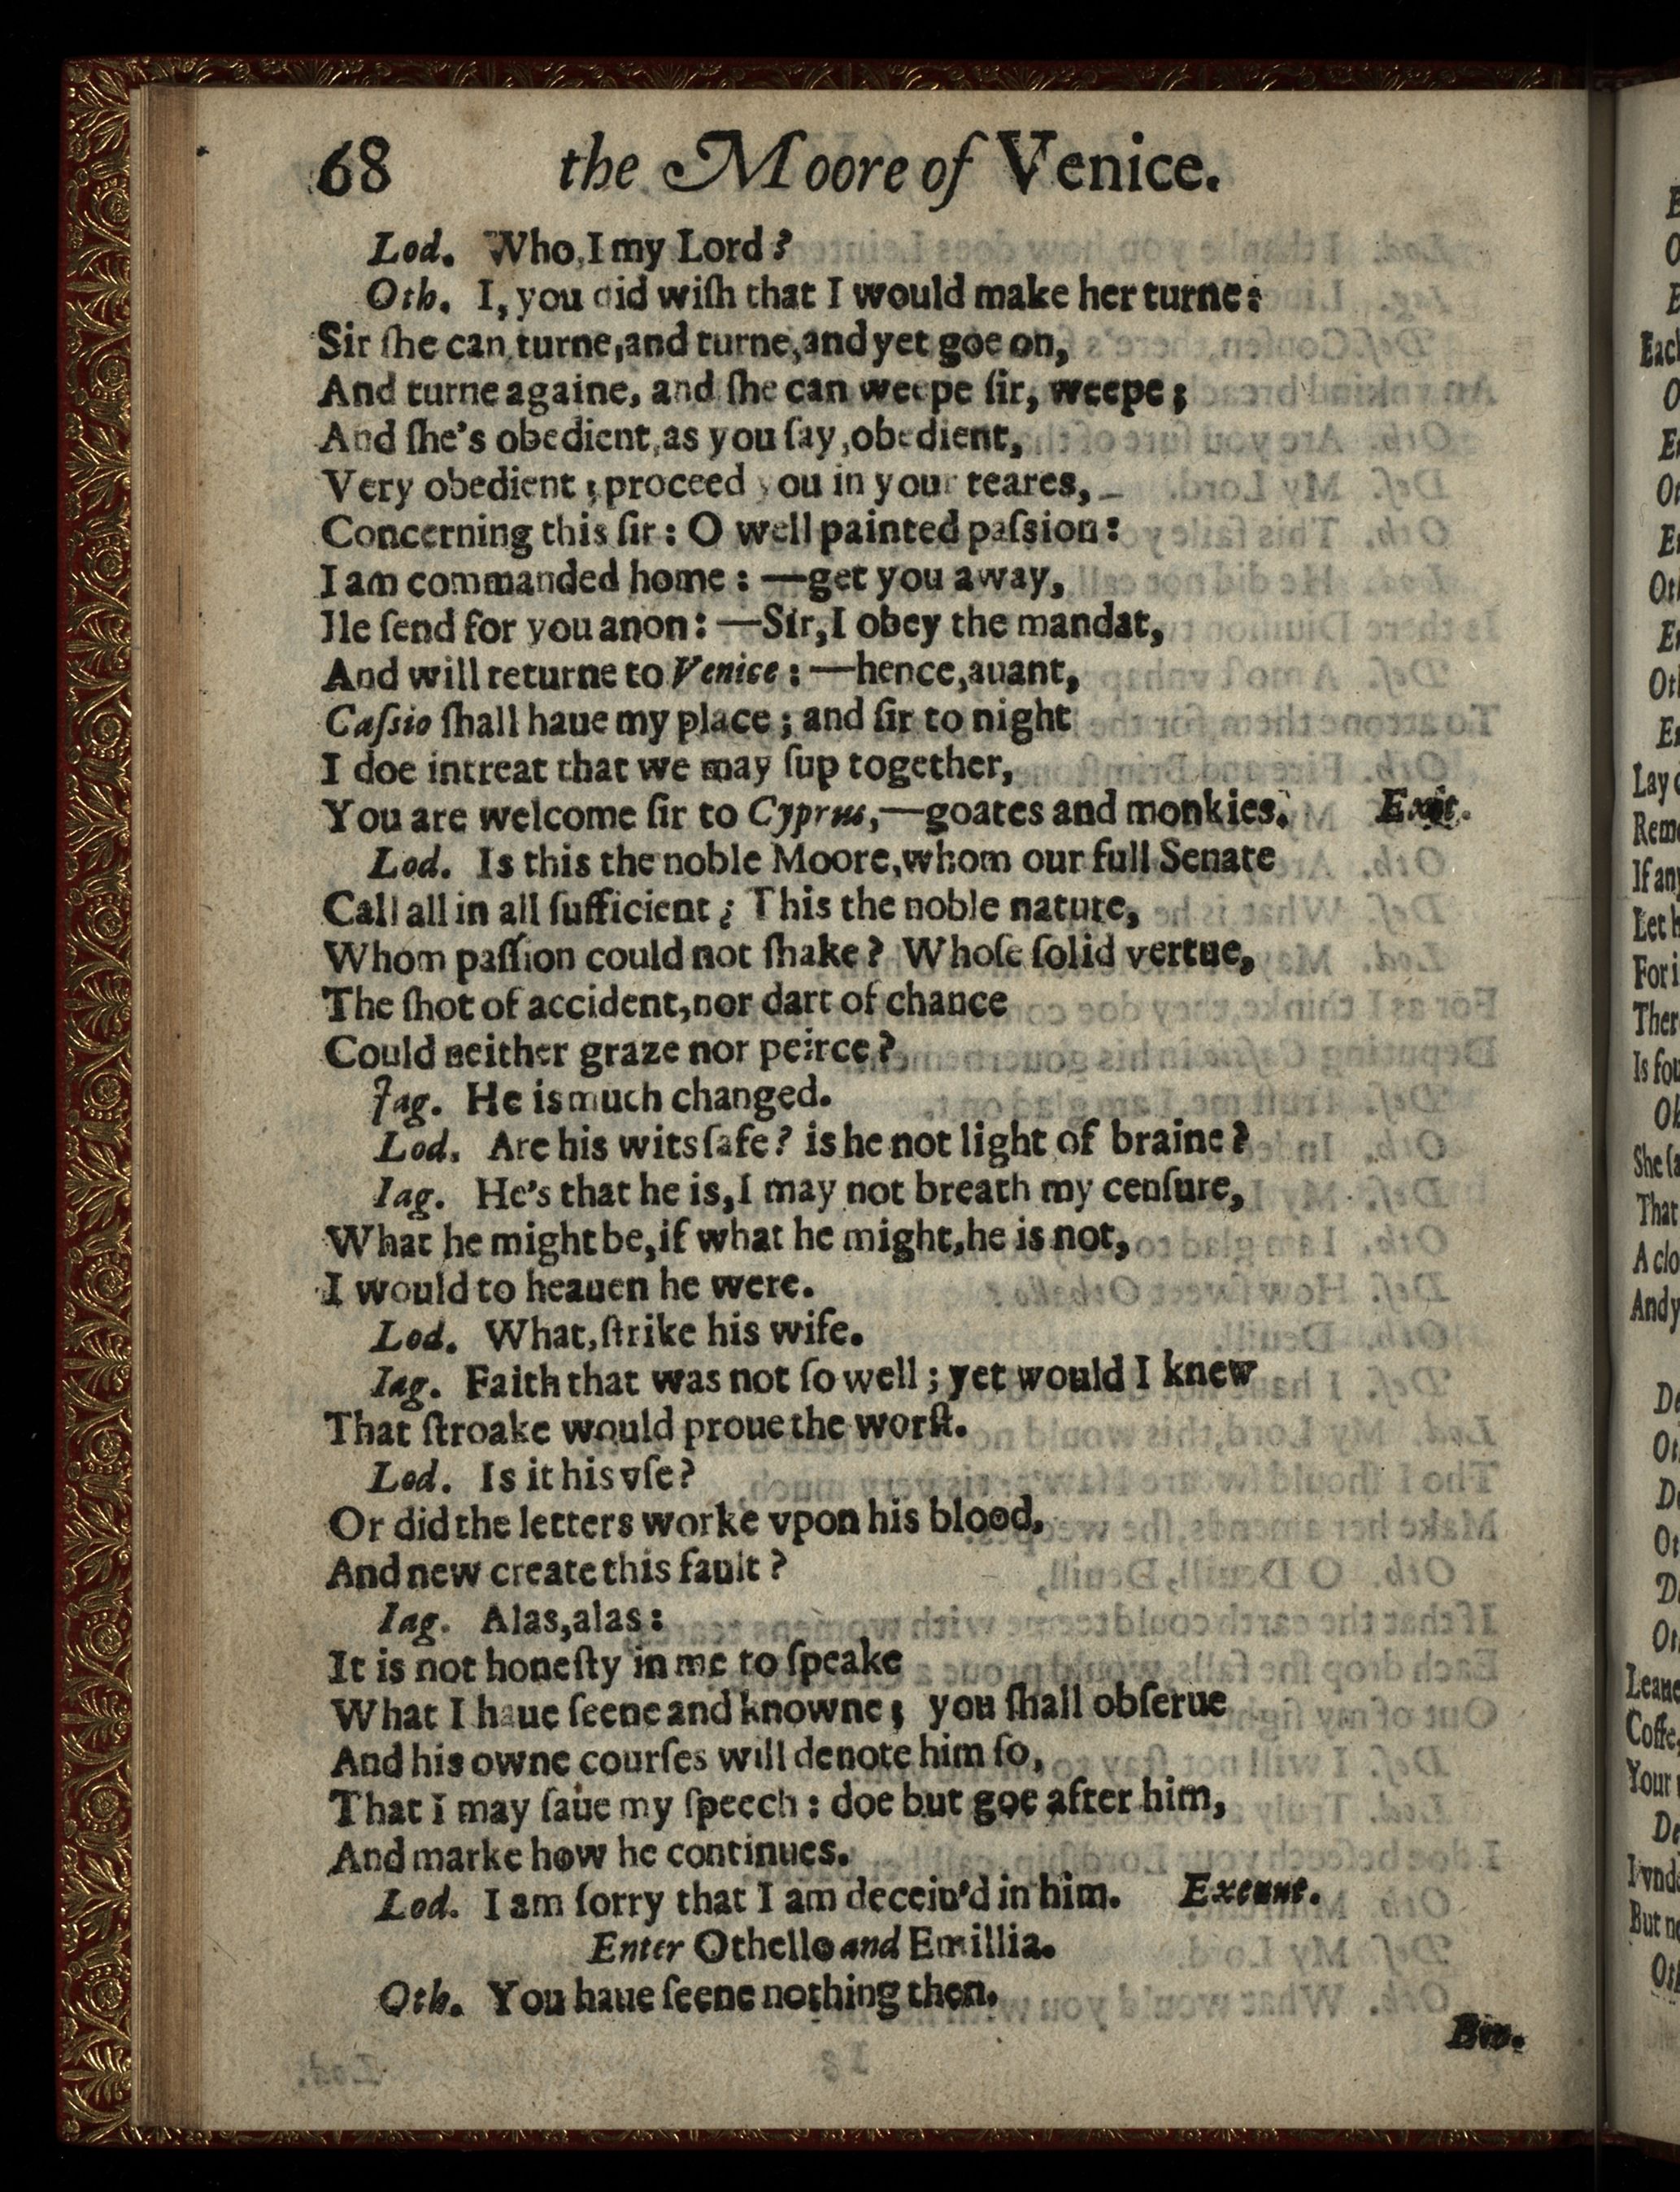 68 the Moore of Venice.
Lod. Who, I my Lord?
Oth. I, you did wiſh that I would make her turne:
Sir ſhe can turne, and turne, and yet goe on,
And turne againe, and ſhe can weepe ſir, weepe;
And ſhe's obedient, as you ſay, obedient,
Very obedient; proceed you in your teares,
Concerning this ſir: O well painted paſsion:
I am commanded home: —get you away,
Ile ſend for you anon: —Sir, I obey the mandat,
And will returne to Venice: —hence, auant,
Caſsio ſhall haue my place; and ſir to night
I doe intreat that we may ſup together,
You are welcome ſir to Cyprus,—goates and monkies. Exit.
Lod. Is this the noble Moore, whom our full Senate
Call all in all ſufficient; This the noble nature,
Whom paſſion could not ſhake? Whoſe ſolid vertue,
The ſhot of accident, nor dart of chance
Could neither graze nor peirce?
Iag. He is much changed.
Lod. Are his wits ſafe? is he not light of braine?
Iag. He's that he is, I may not breath my cenſure,
What he might be, if what he might, he is not,
I would to heauen he were.
Lod. What, ſtrike his wife.
Iag. Faith that was not ſo well; yet would I knew
That ſtroake would proue the worſt.
Lod. Is it his vſe?
Or did the letters worke vpon his blood,
And new create this fault?
Iag. Alas, alas:
It is not honeſty in me to ſpeake
What I haue ſeene and knowne; you ſhall obſerue
And his owne courſes will denote him ſo,
That I may ſaue my ſpeech: doe but goe after him,
And marke how he continues.
Lod. I am ſorry that I am deceiu'd in him. Exeunt.
Enter Othello and Emillia.
Oth. You haue ſeene nothing then.